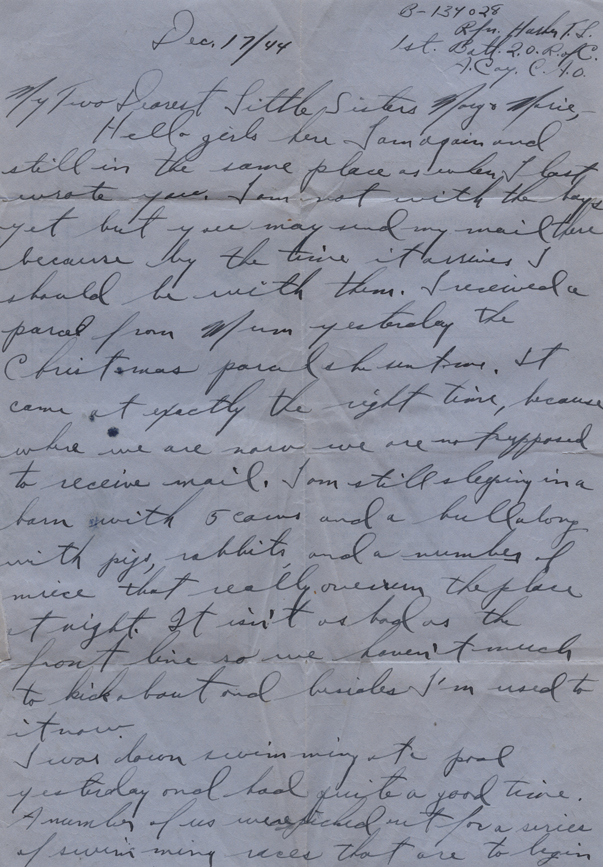 B-134028
Dec. 17/44
Rfn. T. L.
1st. Batt. Q.O.R. of C.
A. Coy. C.A.O.
My Two Dearest Little Sisters May & Marie,-
Hello girls here I am again and
still in the same place as when I last
wrote you. I am not with the boys
yet but you may send my mail there
because by the time it arrives I
should be with them. I received a
parcel from Mum yesterday the
Christmas parcel she sent me. It
came at exactly the right time, because
where we are now we are not supposed
to receive mail. I am still sleeping in a
barn with 5 cows and a bull along
with pigs, rabbits, and a number of
miece that really overrun the place
at night. It isn't as bad as the
front line so we haven't much
to kick about and besides I'm used to
it now.
I was down swimming at a pool
yesterday and had quite a good time.
A number of us were picked out for a series
of swimming races that are to begin